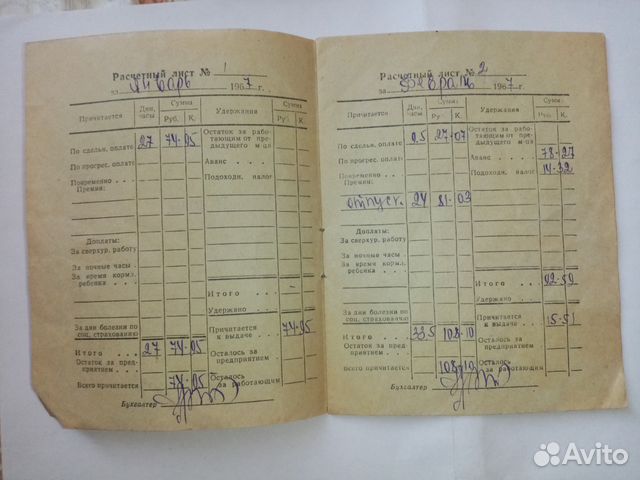 Расчетный лист № 1
за Январь 1967 г.
Причитается
Дни, часы
Сумма
Руб. К.
Удержания
Сумма
Руб. К.
По сдельн. оплате 27 74-95
Остаток за работающим от предыдущего м-ца
По прогрес. оплате
Аванс . . .
Повременно . . .
Подоходн. налог
Премии:
Доплаты:
За сверхур. работу
За ночные часы .
За время корм. ребенка . . .
Итого . . .
Удержано . .
За дни болезни по соц. страхованию
Причитается к выдаче . . 74-95
Итого . . . 27 74-95
Остаток за предприятием . .
Осталось за предприятием
Всего причитается 74-95
Осталось за работающим
Бухгалтер
Расчетный лист № 2
за Февраль 1967 г.
Причитается
Дни, часы
Сумма
Руб. К.
Удержания
Сумма
Руб. К.
По сдельн. оплате 9.5 27-07
Остаток за работающим от предыдущего м-ца
По прогрес. оплате
Аванс . . . 78-27
Повременно . . .
Подоходн. налог 14-32
Премии:
отпуск. 24 81-03
Доплаты:
За сверхур. работу
За ночные часы .
За время корм. ребенка . . .
Итого . . . 92-59
Удержано . .
За дни болезни по соц. страхованию
Причитается к выдаче . . 15-51
Итого . . . 33.5 108-10
Остаток за предприятием . .
Осталось за предприятием
Всего причитается 108-10
Осталось за работающим
Бухгалтер
Avito